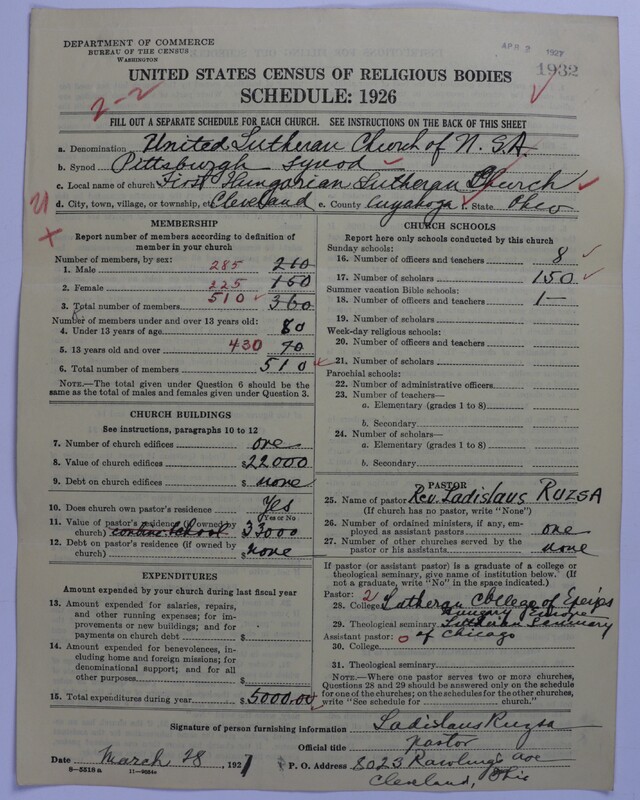 DEPARTMENT OF COMMERCE
BUREAU OF THE CENSUS
WASHINGTON
APR 2 1927
1932
UNITED STATES CENSUS OF RELIGIOUS BODIES
SCHEDULE: 1926
2-2
FILL OUT A SEPARATE SCHEDULE FOR EACH CHURCH. SEE INSTRUCTIONS ON THE BACK OF THIS SHEET
a. Denomination United Lutheran Church of N. S. A.
b. Synod Pittsburgh Synod
c. Local name of church First Hungarian Lutheran Church
d. City, town, village, or township, etc Cleveland e. County Cuyahoga f. State Ohio
MEMBERSHIP
Report number of members according to definition of member in your church
Number of members, by sex:
1. Male 285 210
2. Female 225 150
3. Total number of members 510 360
Number of members under and over 13 years old:
4. Under 13 years of age 80
5. 13 years old and over 430 70
6. Total number of members 510
NOTE.—The total given under Question 6 should be the same as the total of males and females given under Question 3.
CHURCH BUILDINGS
See instructions, paragraphs 10 to 12
7. Number of church edifices one
8. Value of church edifices $22000
9. Debt on church edifices $none
10. Does church own pastor's residence? Yes
Yes or No
11. Value of pastor's residence (if owned by church) $3000
12. Debt on pastor's residence (if owned by church) $none
EXPENDITURES
Amount expended by your church during last fiscal year
13. Amount expended for salaries, repairs, and other running expenses; for improvements or new buildings; and for payments on church debt $
14. Amount expended for benevolences, including home and foreign missions; for denominational support; and for all other purposes $
15. Total expenditures during year $5000.00
CHURCH SCHOOLS
Report here only schools conducted by this church
Sunday schools:
16. Number of officers and teachers 8
17. Number of scholars 150
Summer vacation Bible schools:
18. Number of officers and teachers 1—
19. Number of scholars
Week-day religious schools:
20. Number of officers and teachers
21. Number of scholars
Parochial schools:
22. Number of administrative officers
23. Number of teachers—
a. Elementary (grades 1 to 8)
b. Secondary
24. Number of scholars—
a. Elementary (grades 1 to 8)
b. Secondary
PASTOR
25. Name of pastor Rev. Ladislaus RUZSA
(If church has no pastor, write "None")
26. Number of ordained ministers, if any, employed as assistant pastors one
27. Number of other churches served by the pastor or his assistants none
If pastor (or assistant pastor) is a graduate of a college or theological seminary, give name of institution below. (If not a graduate, write "No" in the space indicated.)
Pastor: 2
28. College Lutheran College of Eperjes
Hungary Europe
29. Theological seminary Lutheran Seminary
Assistant pastor: of Chicago
30. College
31. Theological seminary
NOTE.—Where one pastor serves two or more churches, Questions 28 and 29 should be answered only on the schedule for one of the churches; on the schedules for the other churches, write "See schedule for church."
Signature of person furnishing information Ladislaus Ruzsa
Official title Pastor
Date March 28, 1927 P. O. Address 8023 Rawlings Ave
Cleveland, Ohio
8—5518 a 11—9084a